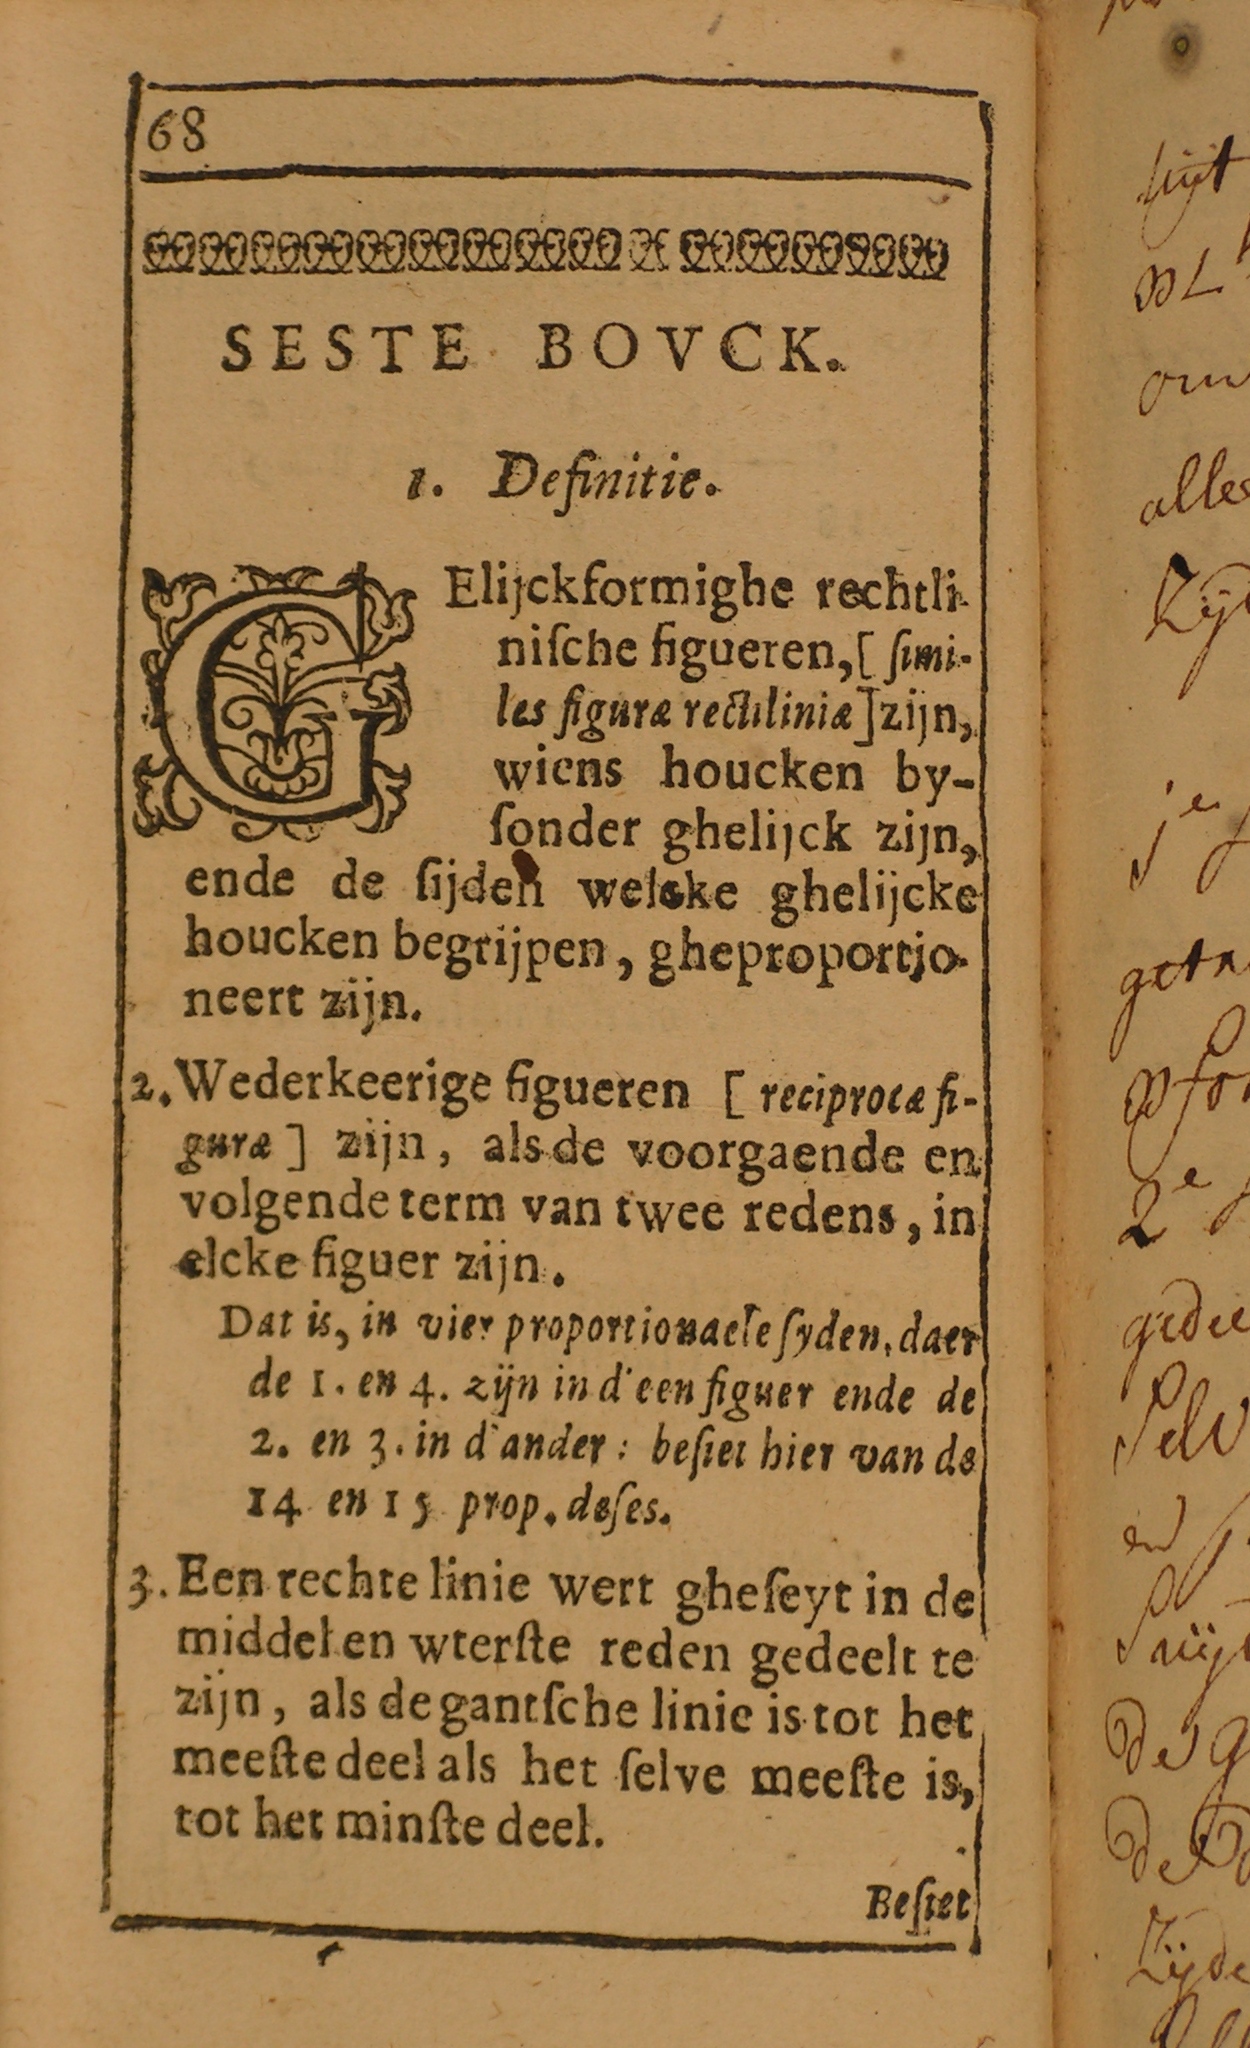 68
SESTE BOVCK.
1. Definitie.
GElijckformighe rechtli-
niſche figueren, [ ſimi-
les figuræ rectiliniæ ] zijn,
wiens houcken by-
ſonder ghelijck zijn,
ende de ſijden welcke ghelijcke
houcken begrijpen, gheproportjo-
neert zijn.
2. Wederkeerige figueren [ reciprocæ fi-
guræ ] zijn, als de voorgaende en
volgende term van twee redens, in
elcke figuer zijn.
Dat is, in vier proportionaele ſyden, daer
de 1. en 4. zijn in d'een figuer ende de
2. en 3. in d'ander : beſiet hier van de
14 en 15 prop. deſes.
3. Een rechte linie wert gheſeyt in de
middel en wterſte reden gedeelt te
zijn, als de gantſche linie is tot het
meeſte deel als het ſelve meeſte is,
tot het minſte deel.
Beſiet
om
alles
je
2e
en